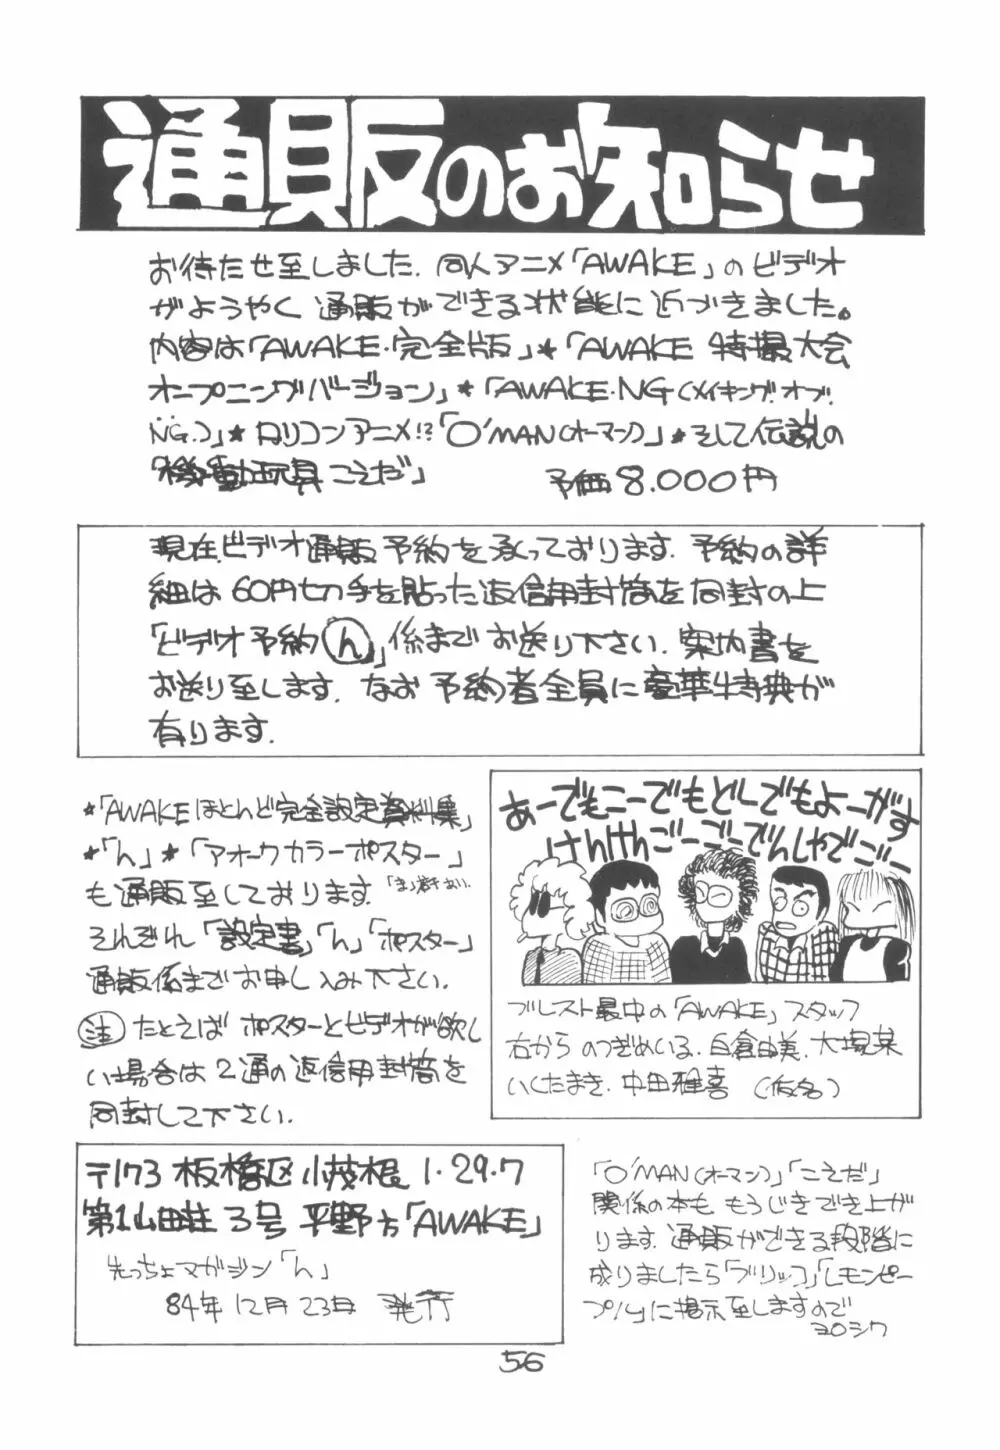 通販のお知らせ
お待たせ至しました. 同人アニメ「AWAKE」のビデオ
がようやく 通販ができる状態に近づきました。
内容は「AWAKE・完全版」*「AWAKE 特撮大会
オープニングバージョン」*「AWAKE・NG(メイキング.オブ.
NG.)」* ロリコンアニメ!?「O'MAN(オーマン)」*そして伝説の
「機動玩具こえだ」 予価8.000円
現在.ビデオ通販予約を承っております. 予約の詳
細は60円切手を貼った返信用封筒を同封の上
「ビデオ予約ん」係まで お送り下さい. 案内書を
お送り至します. なお 予約者全員に豪華特典が
有ります.
*「AWAKEほとんど完全設定資料集」
*「ん」*「アオークカラーポスター」
も通販至しております.
それぞれ「設定書」「ん」「ポスター」
通販係までお申し込み下さい.
注 たとえば ポスターとビデオが欲し
い場合は 2通の返信用封筒を
同封して下さい.
あーでもこーでもどーでもよーがす
けんけんごーごーでんしゃでごー
ブレスト最中の「AWAKE」スタッフ
右から のつぎめいる. 白倉由美. 大場某
いくたまき. 中田雅喜 (仮名)
〒173 板橋区小茂根 1・29・7
第1山田荘 3号 平野方「AWAKE」
先っちょマガジン「ん」
84年12月23日 発行
「O'MAN(オーマン)」「こえだ」
関係の本も もうじきでき上が
ります. 通販ができる段階に
成りましたら「ブリッコ」「レモンピー
プル」に掲示至しますので
ヨロシク
56